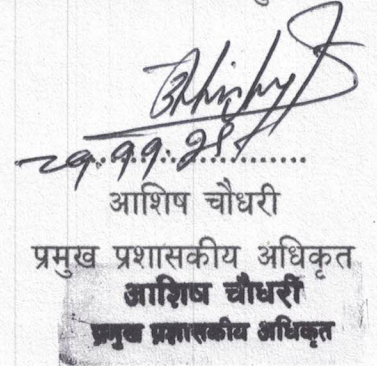 आशिष चौधरी
प्रमुख प्रशासकीय अधिकृत
आशिष चौधरी
प्रमुख प्रशासकीय अधिकृत